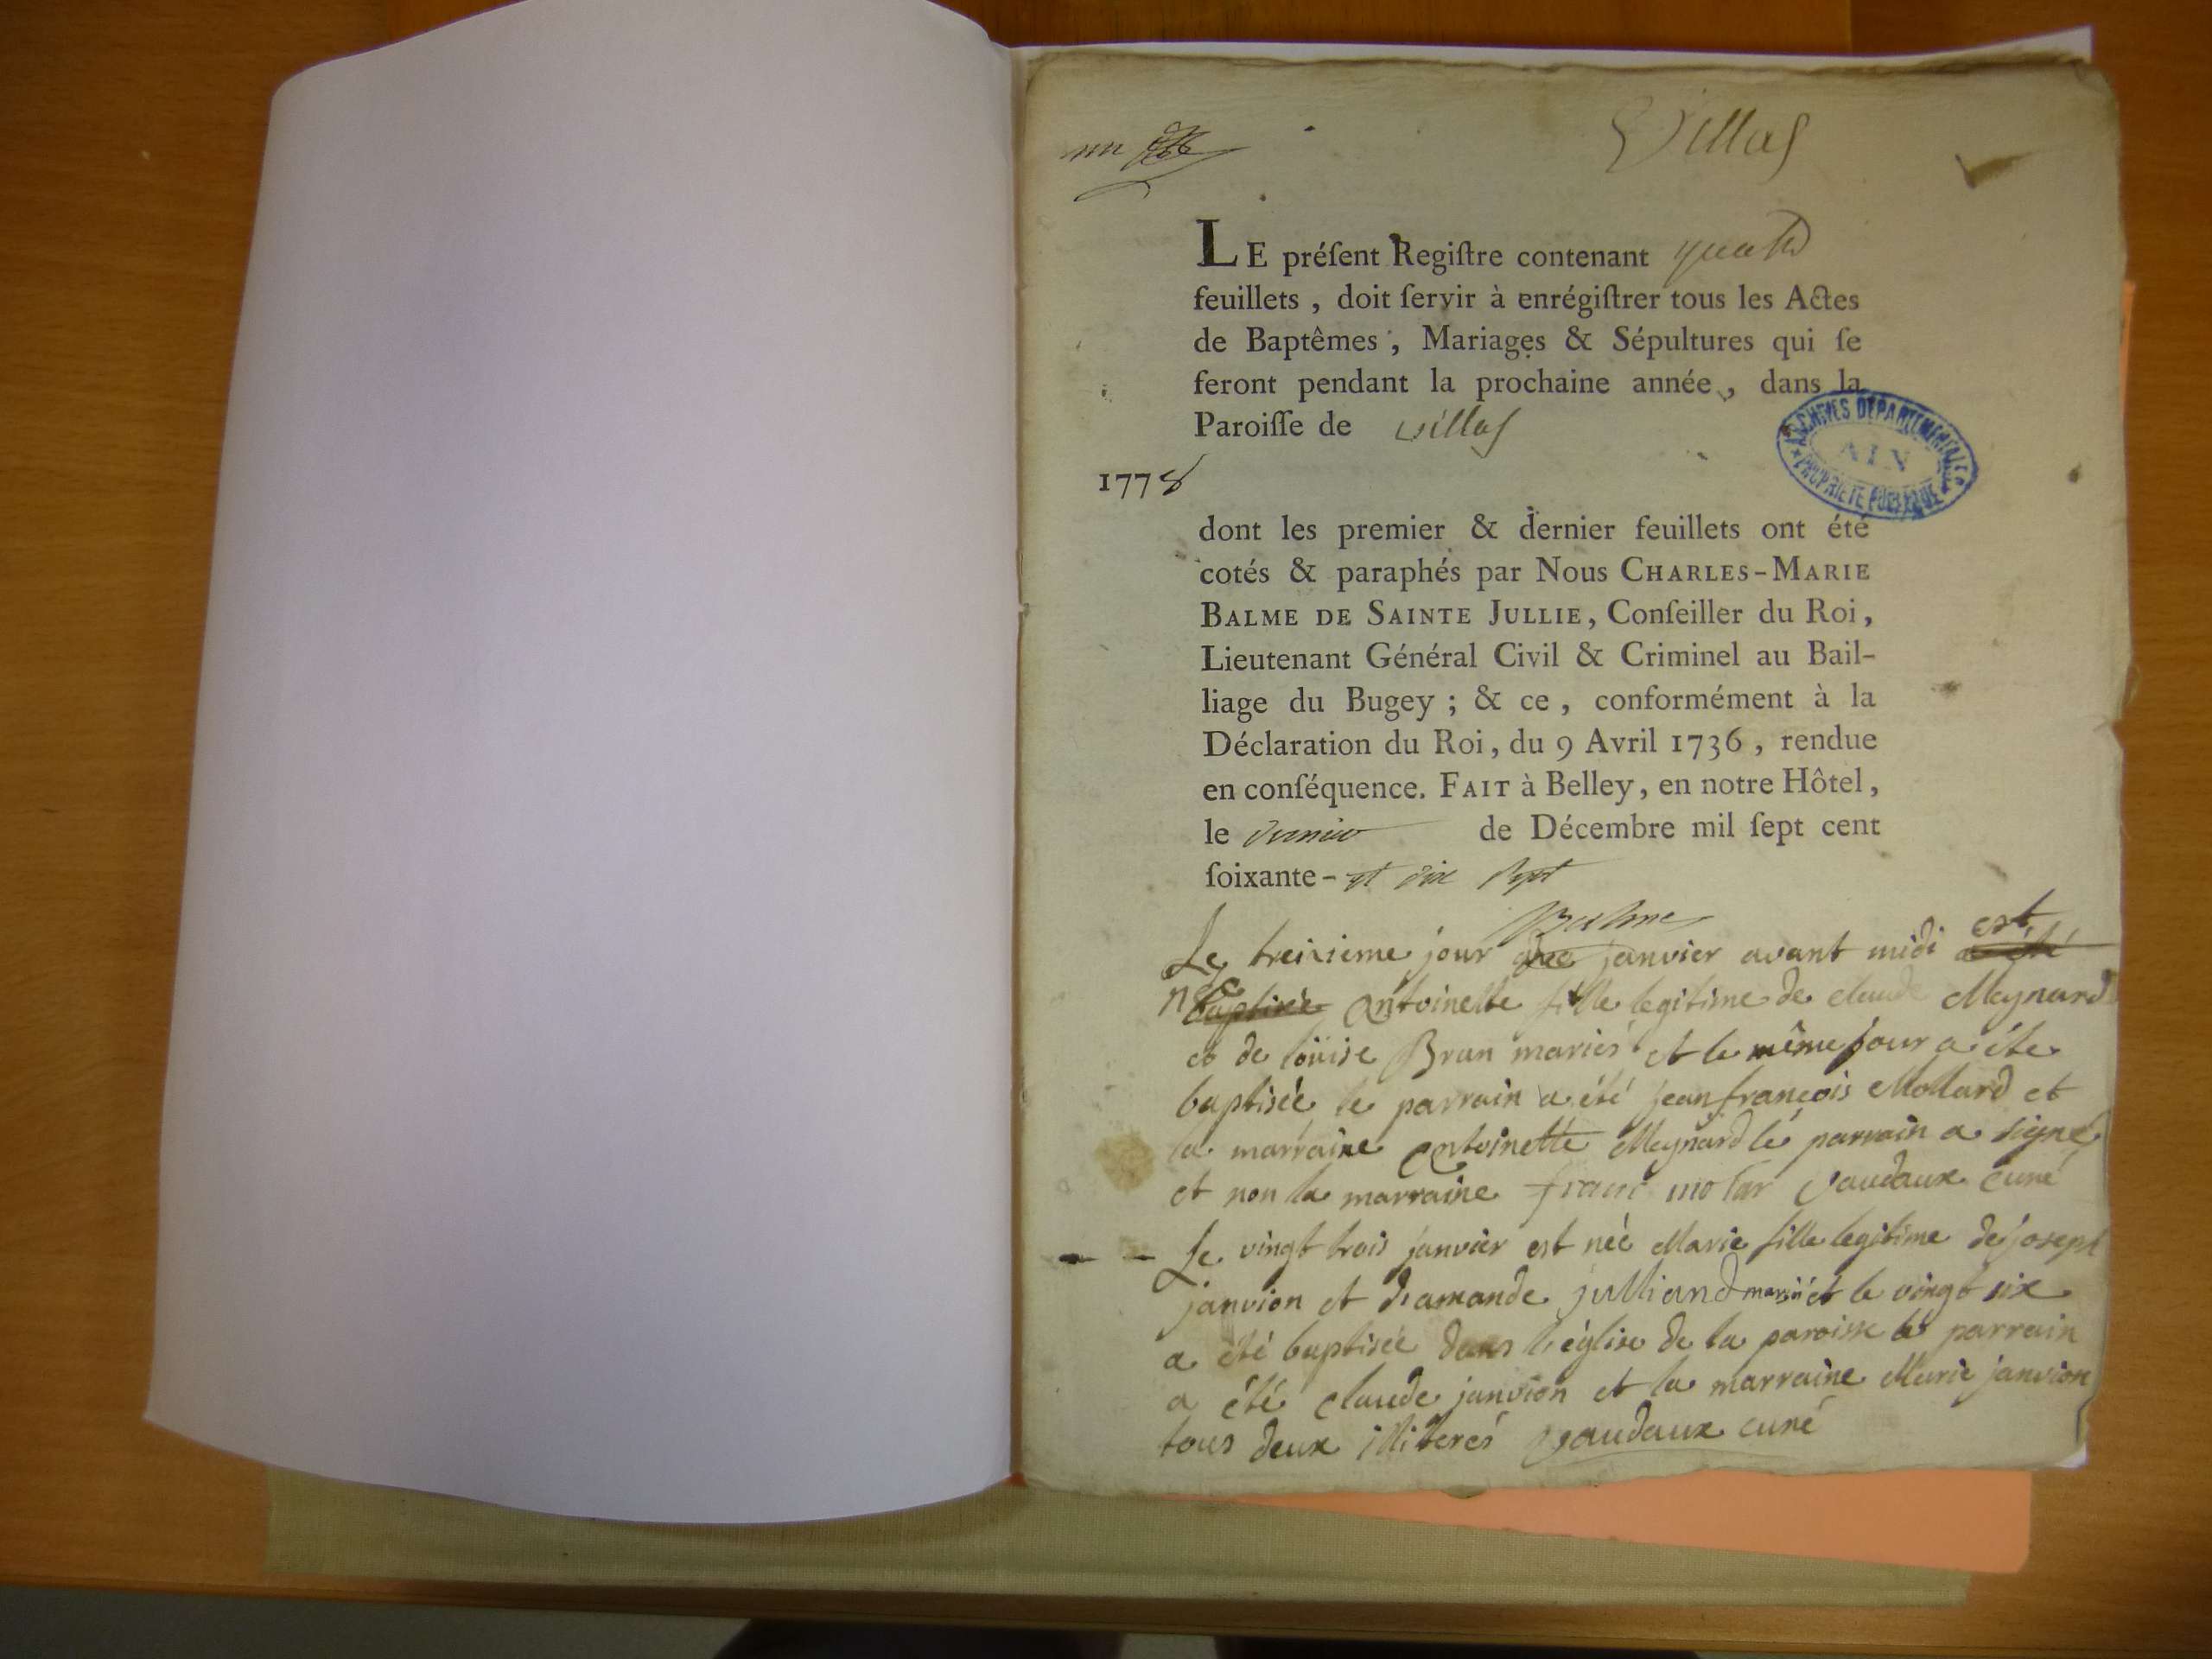 un
Villas
LE préſent Regiſtre contenant quatre
feuillets , doit ſervir à enrégiſtrer tous les Actes
de Baptêmes , Mariages & Sépultures qui ſe
feront pendant la prochaine année , dans la
Paroiſſe de villas
ARCHIVES DEPARTEMENTALES
AIN
PROPRIETE PUBLIQUE
1778
dont les premier & dernier feuillets ont été
cotés & paraphés par Nous CHARLES-MARIE
BALME DE SAINTE JULLIE, Conſeiller du Roi,
Lieutenant Général Civil & Criminel au Bail-
liage du Bugey ; & ce , conformément à la
Déclaration du Roi, du 9 Avril 1736 , rendue
en conſéquence. FAIT à Belley, en notre Hôtel,
le dernier de Décembre mil ſept cent
ſoixante- et dix sept
Balme
Le treizieme jour de janvier avant midi est a été
née baptisée antoinette fille legitime de claude Meynard
et de loüise Brun mariés et le même jour a été
baptisée le parrain a été jean françois Mollard et
la marraine antoinette Meynard le parrain a signé
et non la marraine franc molar vaudaux curé
Le vingt trois janvier est née Marie fille legitime de joseph
janvion et diamande julliand mariés et le vingt six
a été baptisée dans l'église de la paroisse le parrain
a été claude janvion et la marraine Marie janvion
tous deux illiterés vaudaux curé